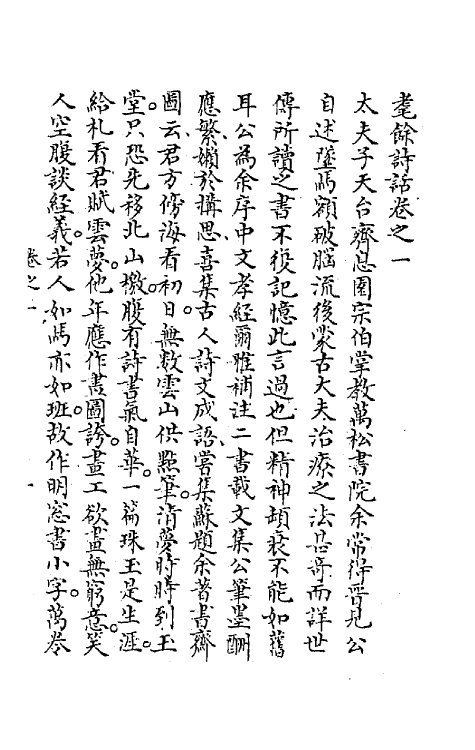 耄餘詩話卷之一
太夫子天台齊息園宗伯掌教萬松書院余常得晉見公
自述墜馬額破腦流後蒙古大夫治療之法甚奇而詳世
傳所讀之書不復記憶此言過也但精神頓衰不能如舊
耳公為余序中文孝經爾雅補注二書載文集公筆墨酬
應繁嬾於構思喜集古人詩文成語嘗集蘇題余著書齋
圖云君方傍海看初日無數雲山供點筆清夢時時到玉
堂只恐先移北山檄腹有詩書氣自華一篇珠玉是生涯
給札看君賦雲夢他年應作畫圖誇畫工欲畫無窮意笑
人空腹談經義若人如馬亦如班故作明窓書小字萬卷
卷之一 一